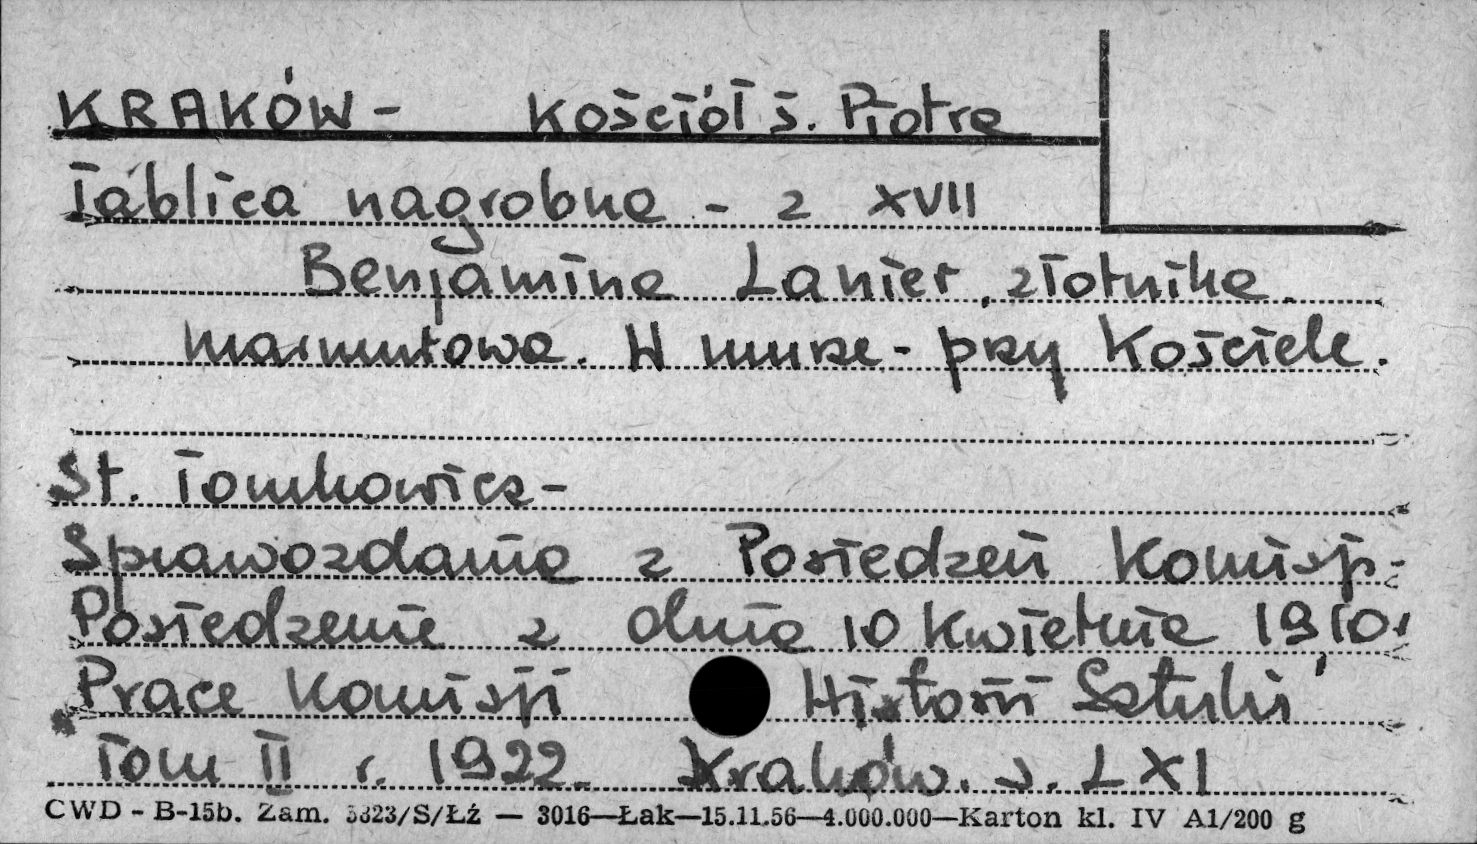 KRAKÓW - Kościół ś. Piotra
Tablica nagrobna - z XVII
Benjamina Lanier, złotnika.
marmurowa. W murze - przy Kościele.
St. Tomkowicz -
Sprawozdania z Posiedzeń Komisji -
Posiedzenie z dnia 10 kwietnia 1910.
Prace Komisji Historii Sztuki
Tom II r. 1922. Kraków. s. LXI
CWD - B-15b. Zam. 5323/S/Łź — 3016—Łak—15.11.56—4.000.000—Karton kl. IV A1/200 g